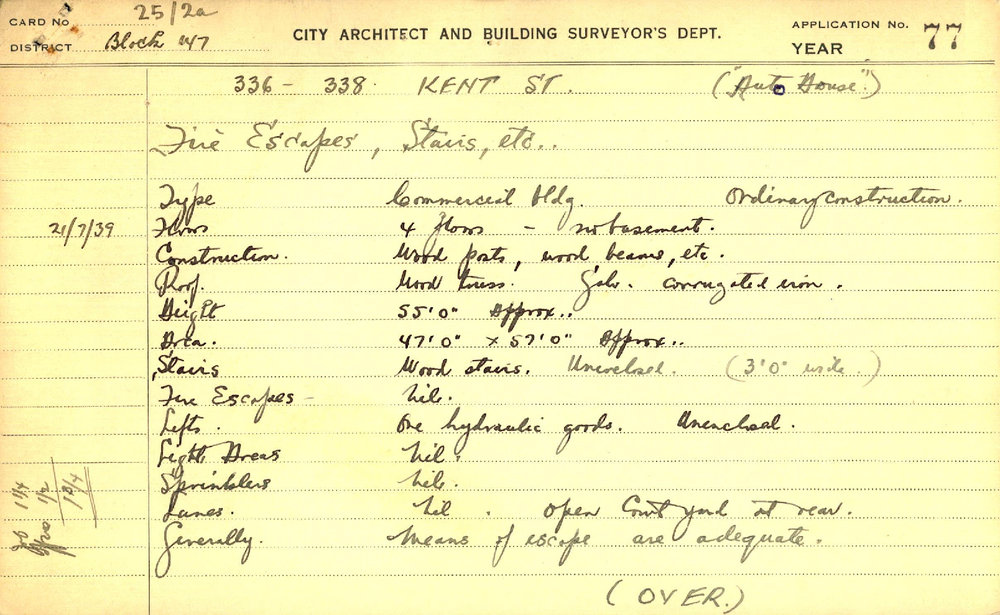 CARD No 25/2a
DISTRICT Block 47
CITY ARCHITECT AND BUILDING SURVEYOR'S DEPT.
APPLICATION No. 77
YEAR
336 - 338. KENT ST. ("Auto House")
Fire Escapes, Stairs, etc..
Type Commercial bldg. Ordinary construction.
21/7/39 Floors 4 floors - no basement.
Construction. Wood posts, wood beams, etc.
Roof. Wood truss. Galv. corrugated iron.
Height 55'0" Approx..
Area. 47'0" x 57'0" Approx..
Stairs Wood stairs. Unenclosed. (3'0" wide.)
Fire Escapes - Nil.
Lifts. One hydraulic goods. Unenclosed.
Light Areas Nil.
Sprinklers Nil.
Lanes. Nil. Open Court yard at rear.
Generally. Means of escape are adequate.
(OVER.)